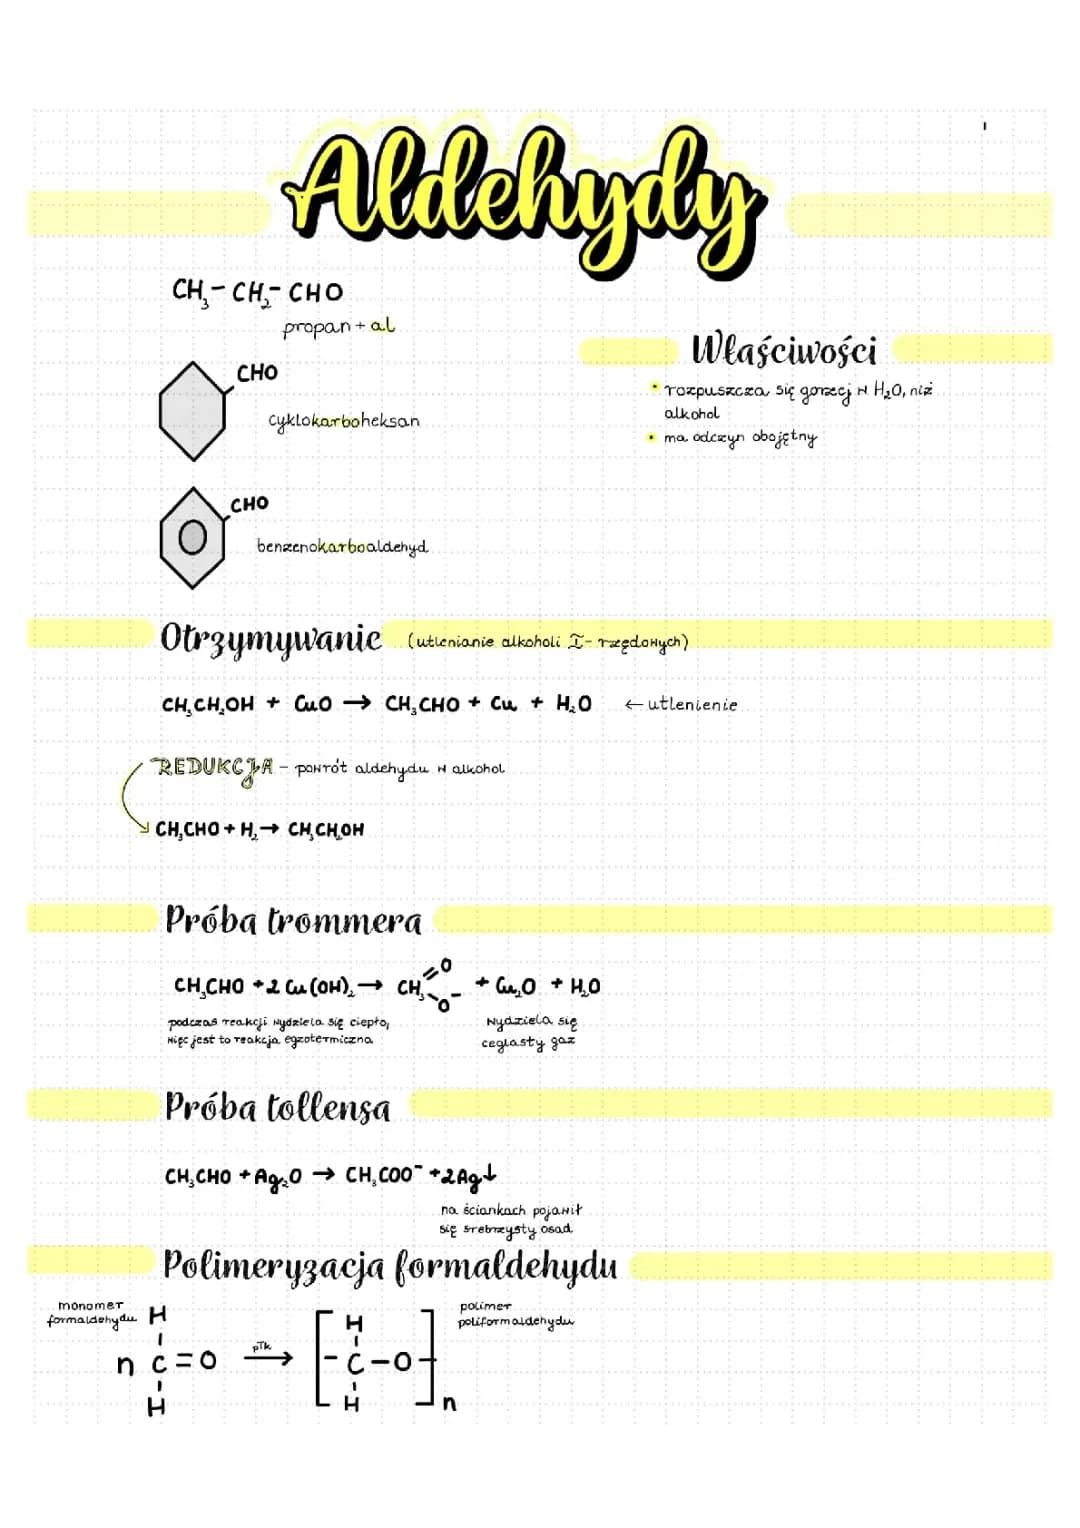 Aldehydy
CH₃-CH₂-CHO
propan + al
CHO
cyklokarboheksan
CHO
benzenokarboaldehyd
Właściwości
• rozpuszcza się gorzej w H₂O, niż
alkohol
• ma odczyn obojętny
Otrzymywanie (utlenianie alkoholi I-rzędowych)
CH₃CH₂OH + CuO → CH₃CHO + Cu + H₂O ← utlenienie
REDUKCJA - powrót aldehydu w alkohol
CH₃CHO + H₂ → CH₃CH₂OH
Próba trommera
CH₃CHO + 2 Cu(OH)₂ → CH₃ =O -O⁻ + Cu₂O + H₂O
podczas reakcji wydziela się ciepło,
więc jest to reakcja egzotermiczna
wydziela się
ceglasty gaz
Próba tollensa
CH₃CHO + Ag₂O → CH₃COO⁻ + 2Ag↓
na ściankach pojawił
się srebrzysty osad
Polimeryzacja formaldehydu
monomer
formaldehydu
H
n C=O
H
pTk →
[H
-C-O-
H]n
polimer
poliformaldehydu